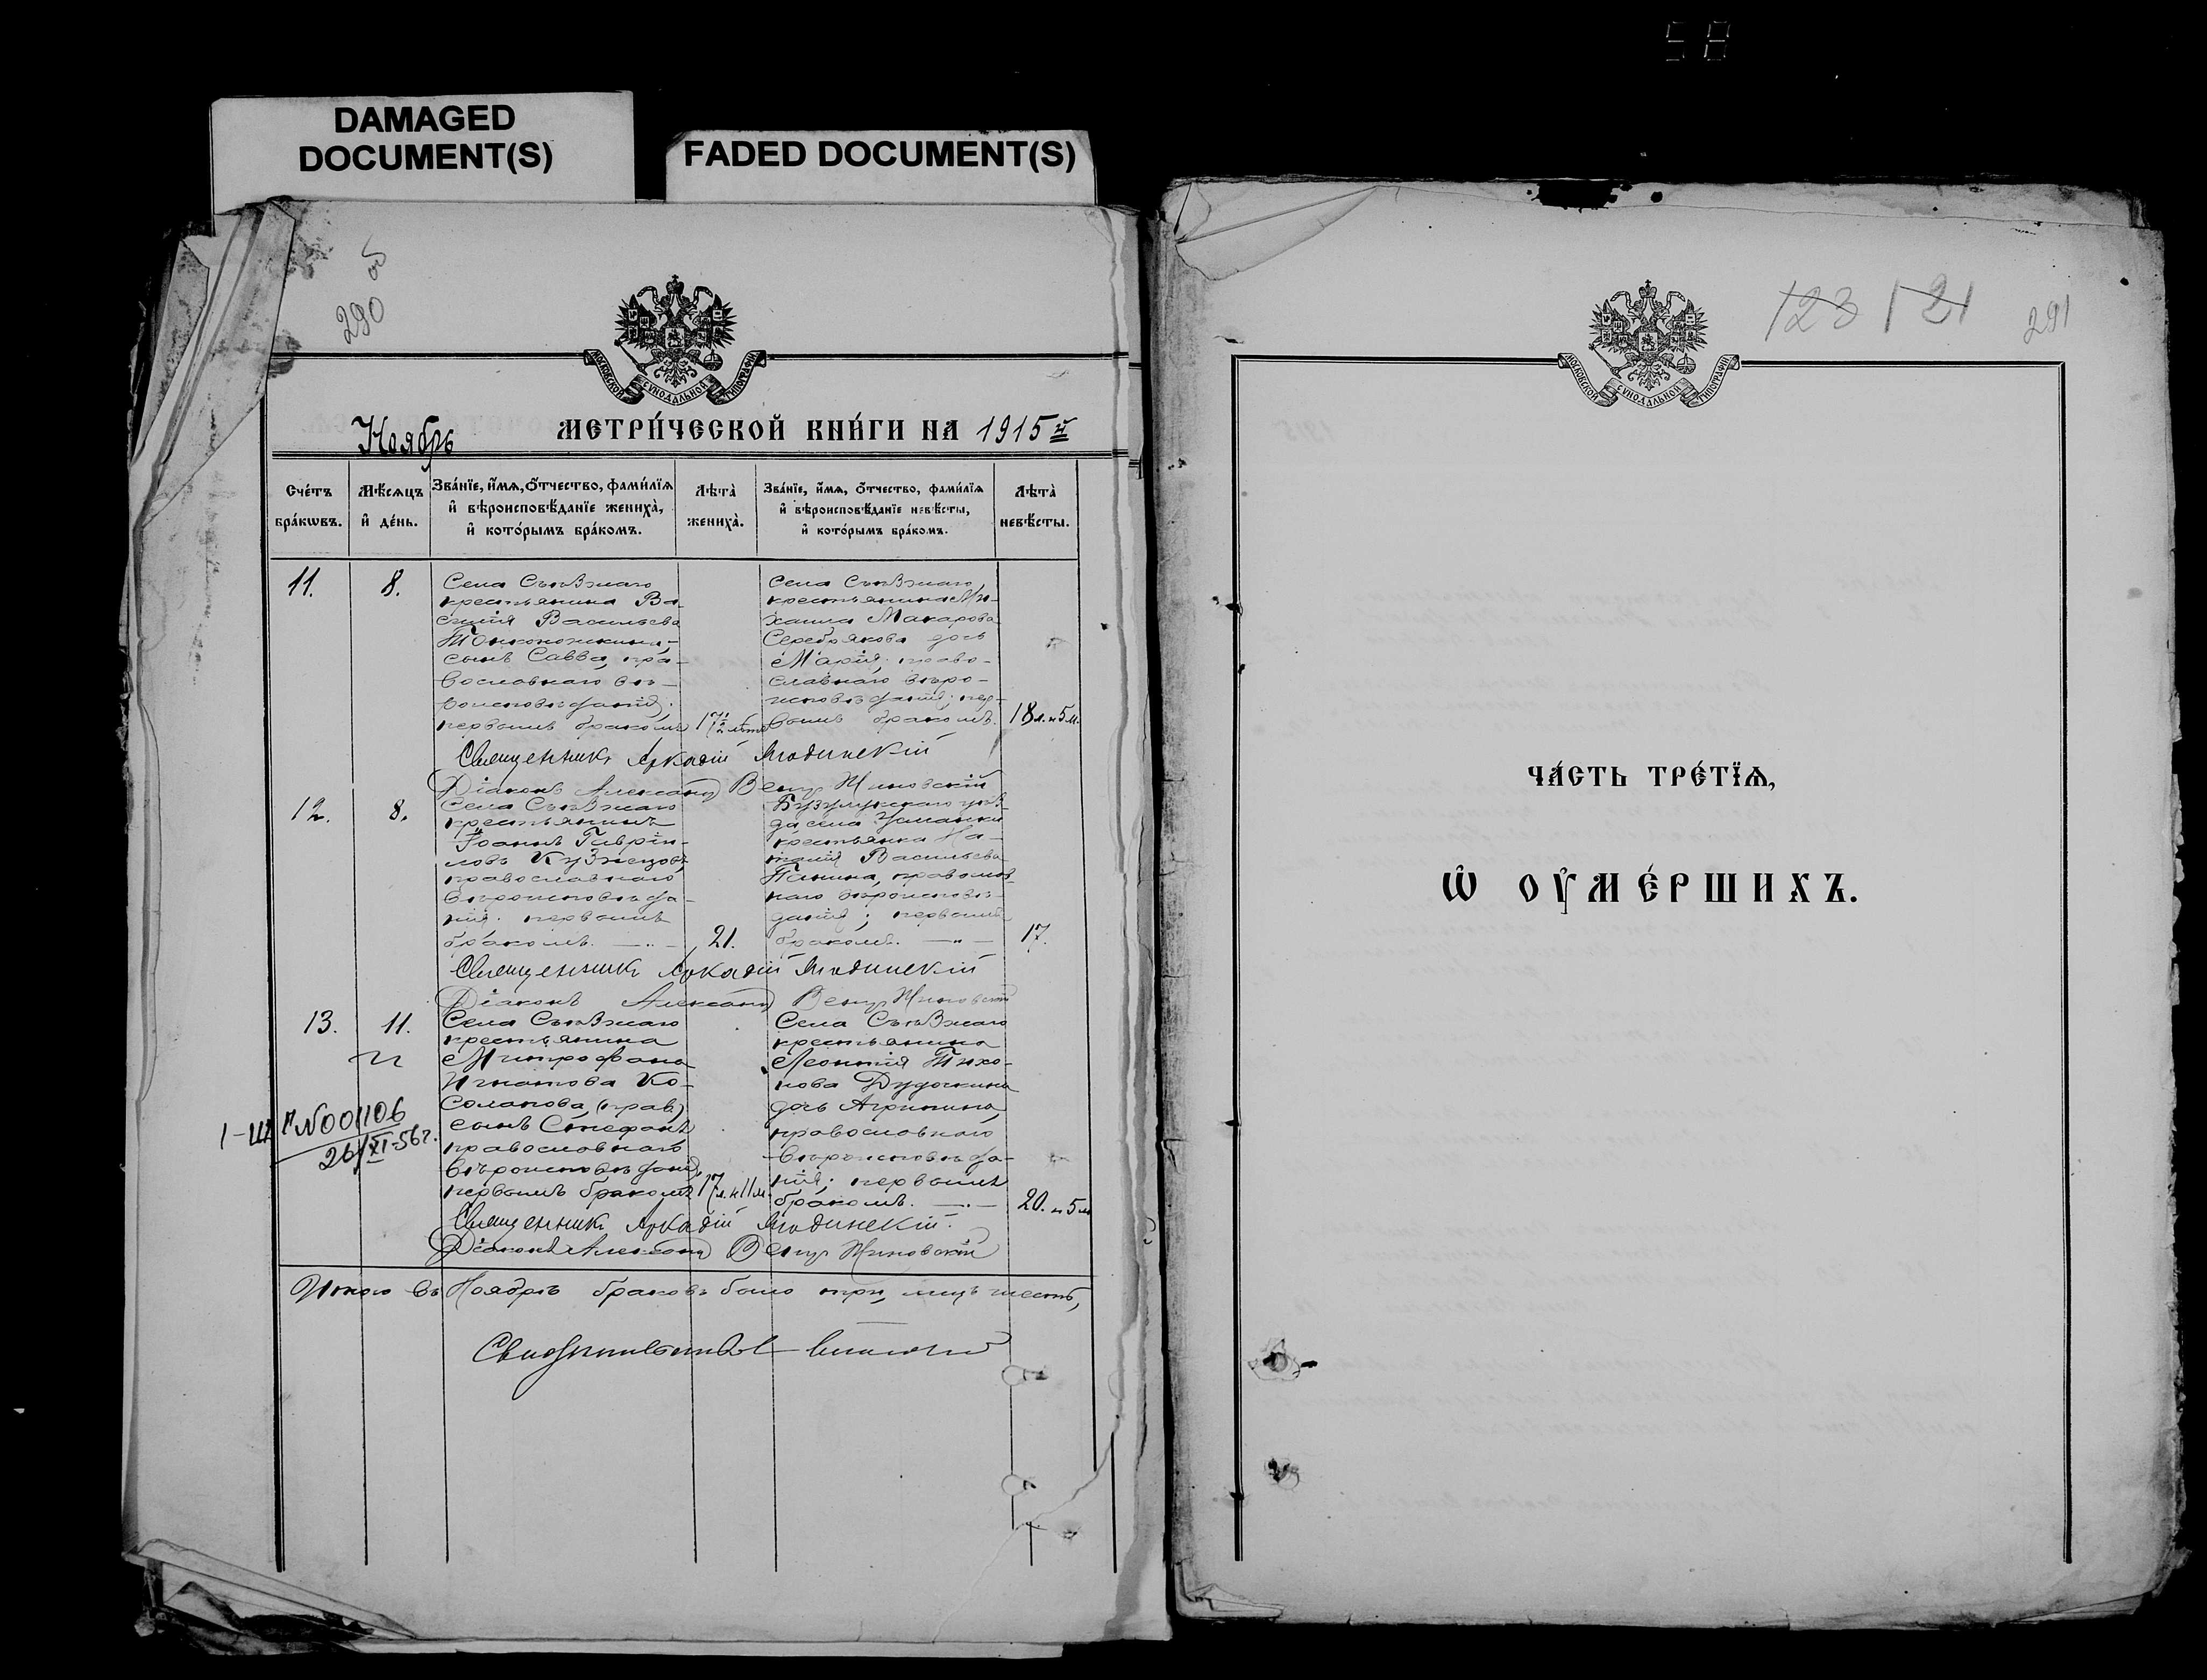 58
DAMAGED
DOCUMENT(S)
FADED DOCUMENT(S)
290 об
МОСКОВСКОЙ СѴНОДАЛЬНОЙ ТИПОГРАФІИ
Ноябрь МЕТРИ́ЧЕСКОЙ КНИ́ГИ НА 1915 й
Сче́тъ бра́кѡвъ.
Мѣ́сѧцъ и҆ де́нь.
Зва́нїе, и҆́мѧ, ѻ҆́тчество, фами́лїѧ и҆ вѣроисповѣ́данїе жениха̀, и҆ кото́рымъ бра́комъ.
Лѣта̀ жениха̀.
Зва́нїе, и҆́мѧ, ѻ҆́тчество, фами́лїѧ и҆ вѣроисповѣ́данїе невѣ́сты, и҆ кото́рымъ бра́комъ.
Лѣта̀ невѣ́сты.
11.
8.
Села Съѣзжаго
крестьянина Ва-
силія Васильева
Тонконожкина,
сынъ Савва, пра-
вославнаго вѣ-
роисповѣданія;
первымъ бракомъ
17 1/2 лѣтъ
Села Съѣзжаго,
крестьянина Ми-
хаила Макарова
Серебрякова дочь
Марія, право-
славнаго вѣро-
исповѣданія; пер-
вымъ бракомъ.
18 л. и 5 м.
Священникъ Аркадій Ягодинскій
Діаконъ Александр
12.
8.
Села Съѣзжаго
крестьянинъ
Іоаннъ Гавріи-
ловъ Кузнецовъ
православнаго
вѣроисповѣда-
нія; первымъ
бракомъ. — „ —
21.
Бузулукскаго уѣз-
да, села Усманки
крестьянка На-
талія Васильева
Панина, православ-
наго вѣроисповѣ-
данія; первымъ
бракомъ. — „ —
17.
Священникъ Аркадій Ягодинскій
Діаконъ Александр
13.
11.
Села Съѣзжаго
крестьянина
Митрофана
Игнатова Ко-
соланова, (прав.)
сынъ Стефанъ
православнаго
вѣроисповѣданія,
первымъ бракомъ
17 л. и 11 м.
Села Съѣзжаго
крестьянина
Леонтія Тихо-
нова Дудочкина
дочь Агрипина,
православнаго
вѣроисповѣда-
нія; первымъ
бракомъ. — „ —
20. и 5 м
№ 001106
26/XI-56 г.
Священникъ Аркадій Ягодинскій.
Діаконъ Александр
Итого въ Ноябрѣ браковъ было три, лицъ шесть,
123 121 291
МОСКОВСКОЙ СѴНОДАЛЬНОЙ ТИПОГРАФІИ
ЧА́СТЬ ТРЕ́ТЇѦ,
Ѡ҆ ОУ҆МЕ́РШИХЪ.